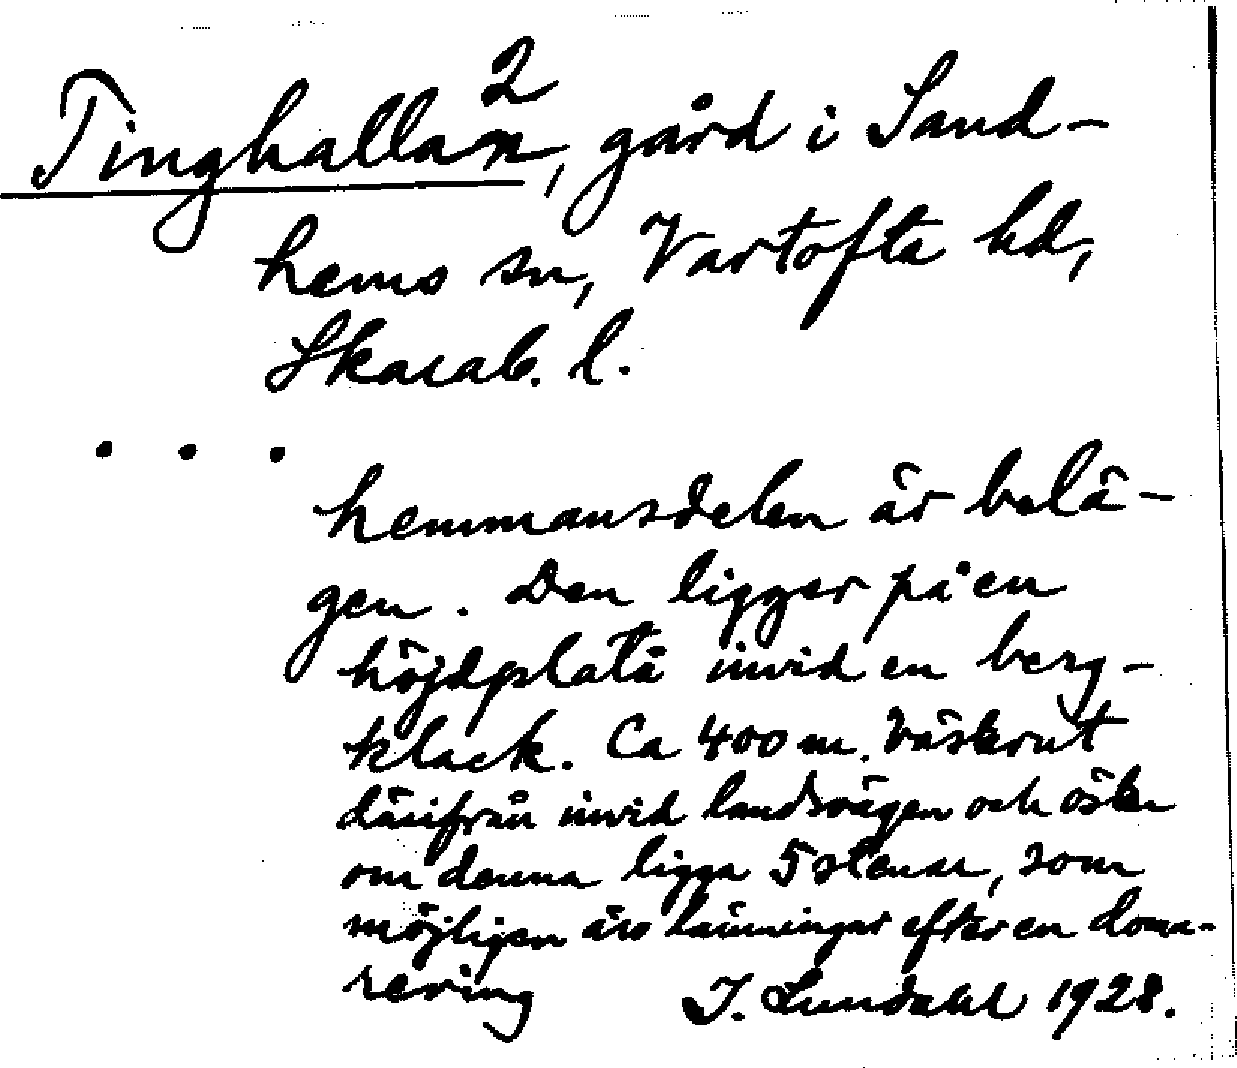 Tinghallan², gård i Sand-
hems sn, Vartofta hd,
Skarab. l.
. . .
hemmansdelen är belä-
gen. Den ligger på en
höjdplatå invid en berg-
klack. Ca 400 m. västerut
därifrån invid landsvägen och öster
om denna ligga 5 stenar, som
möjligen äro lämningar efter en doma-
rering
I. Lundahl 1928.